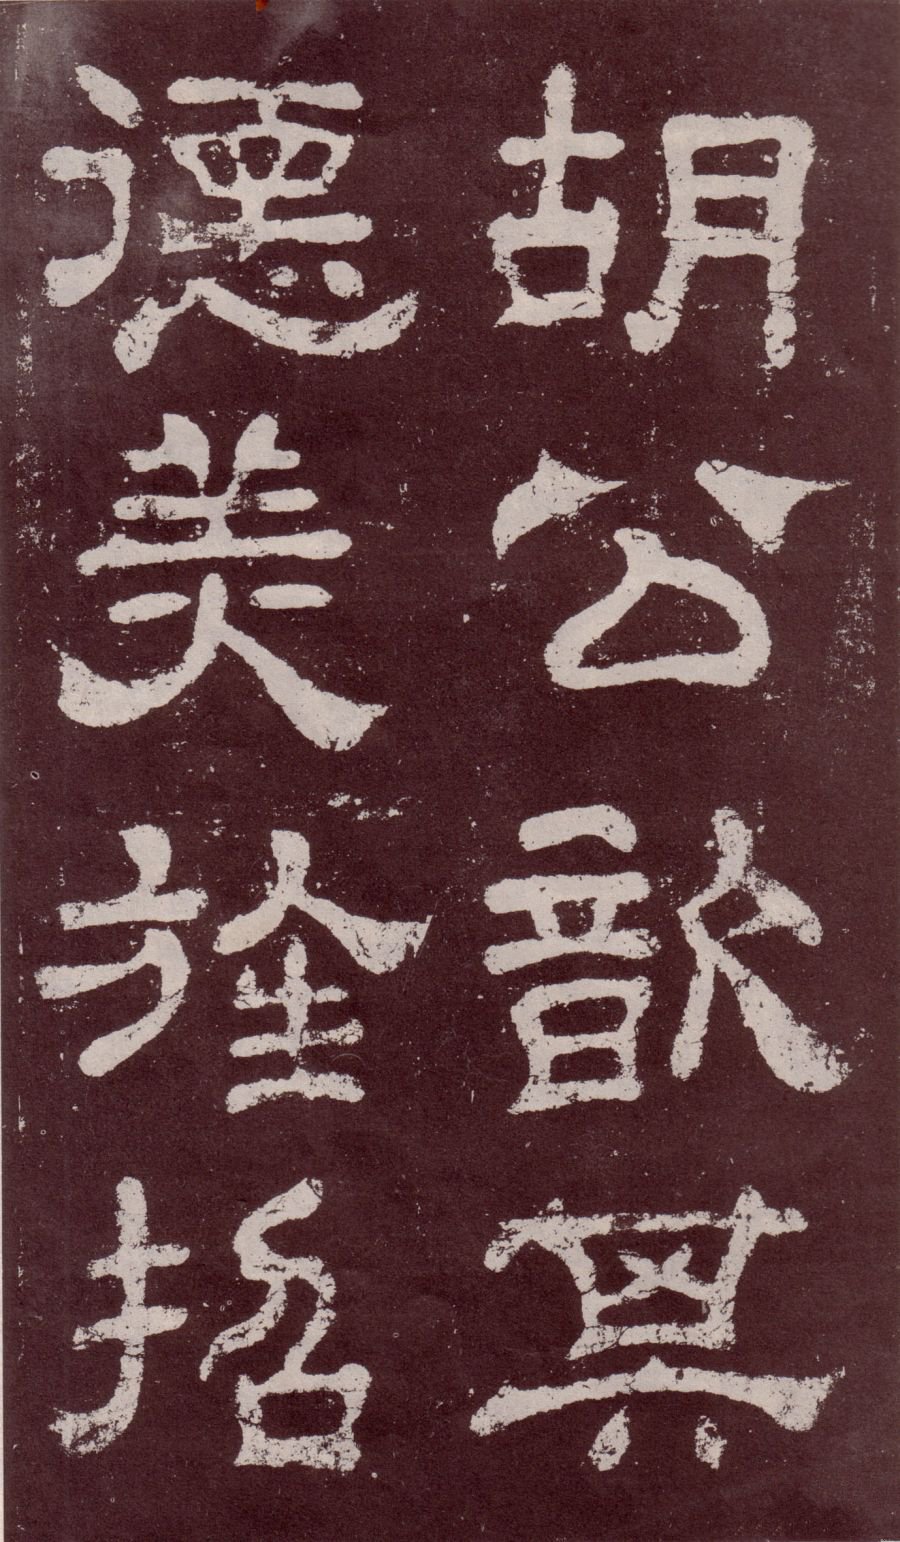 胡公歆其
德美旌招